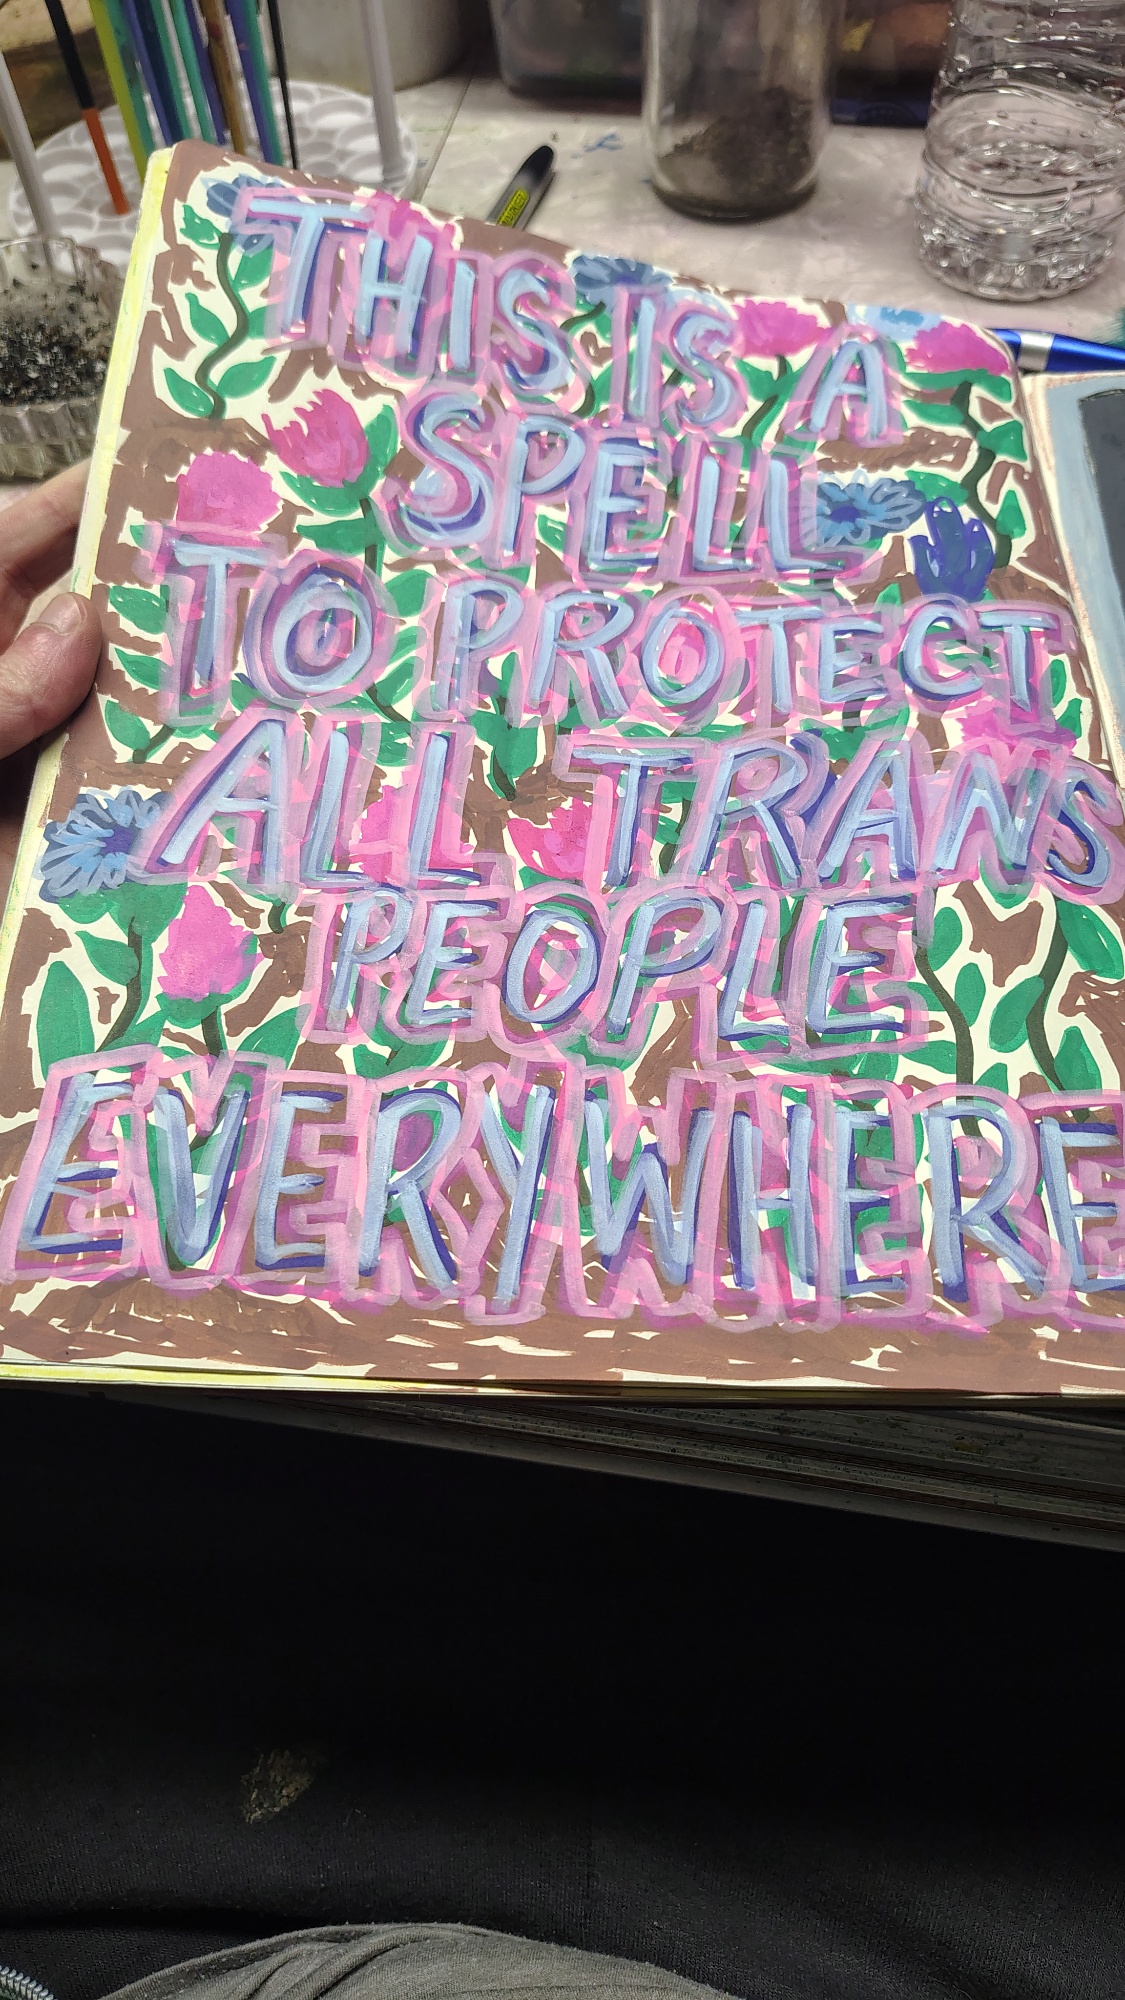 THIS IS A
SPELL
TO PROTECT
ALL TRANS
PEOPLE
EVERYWHERE